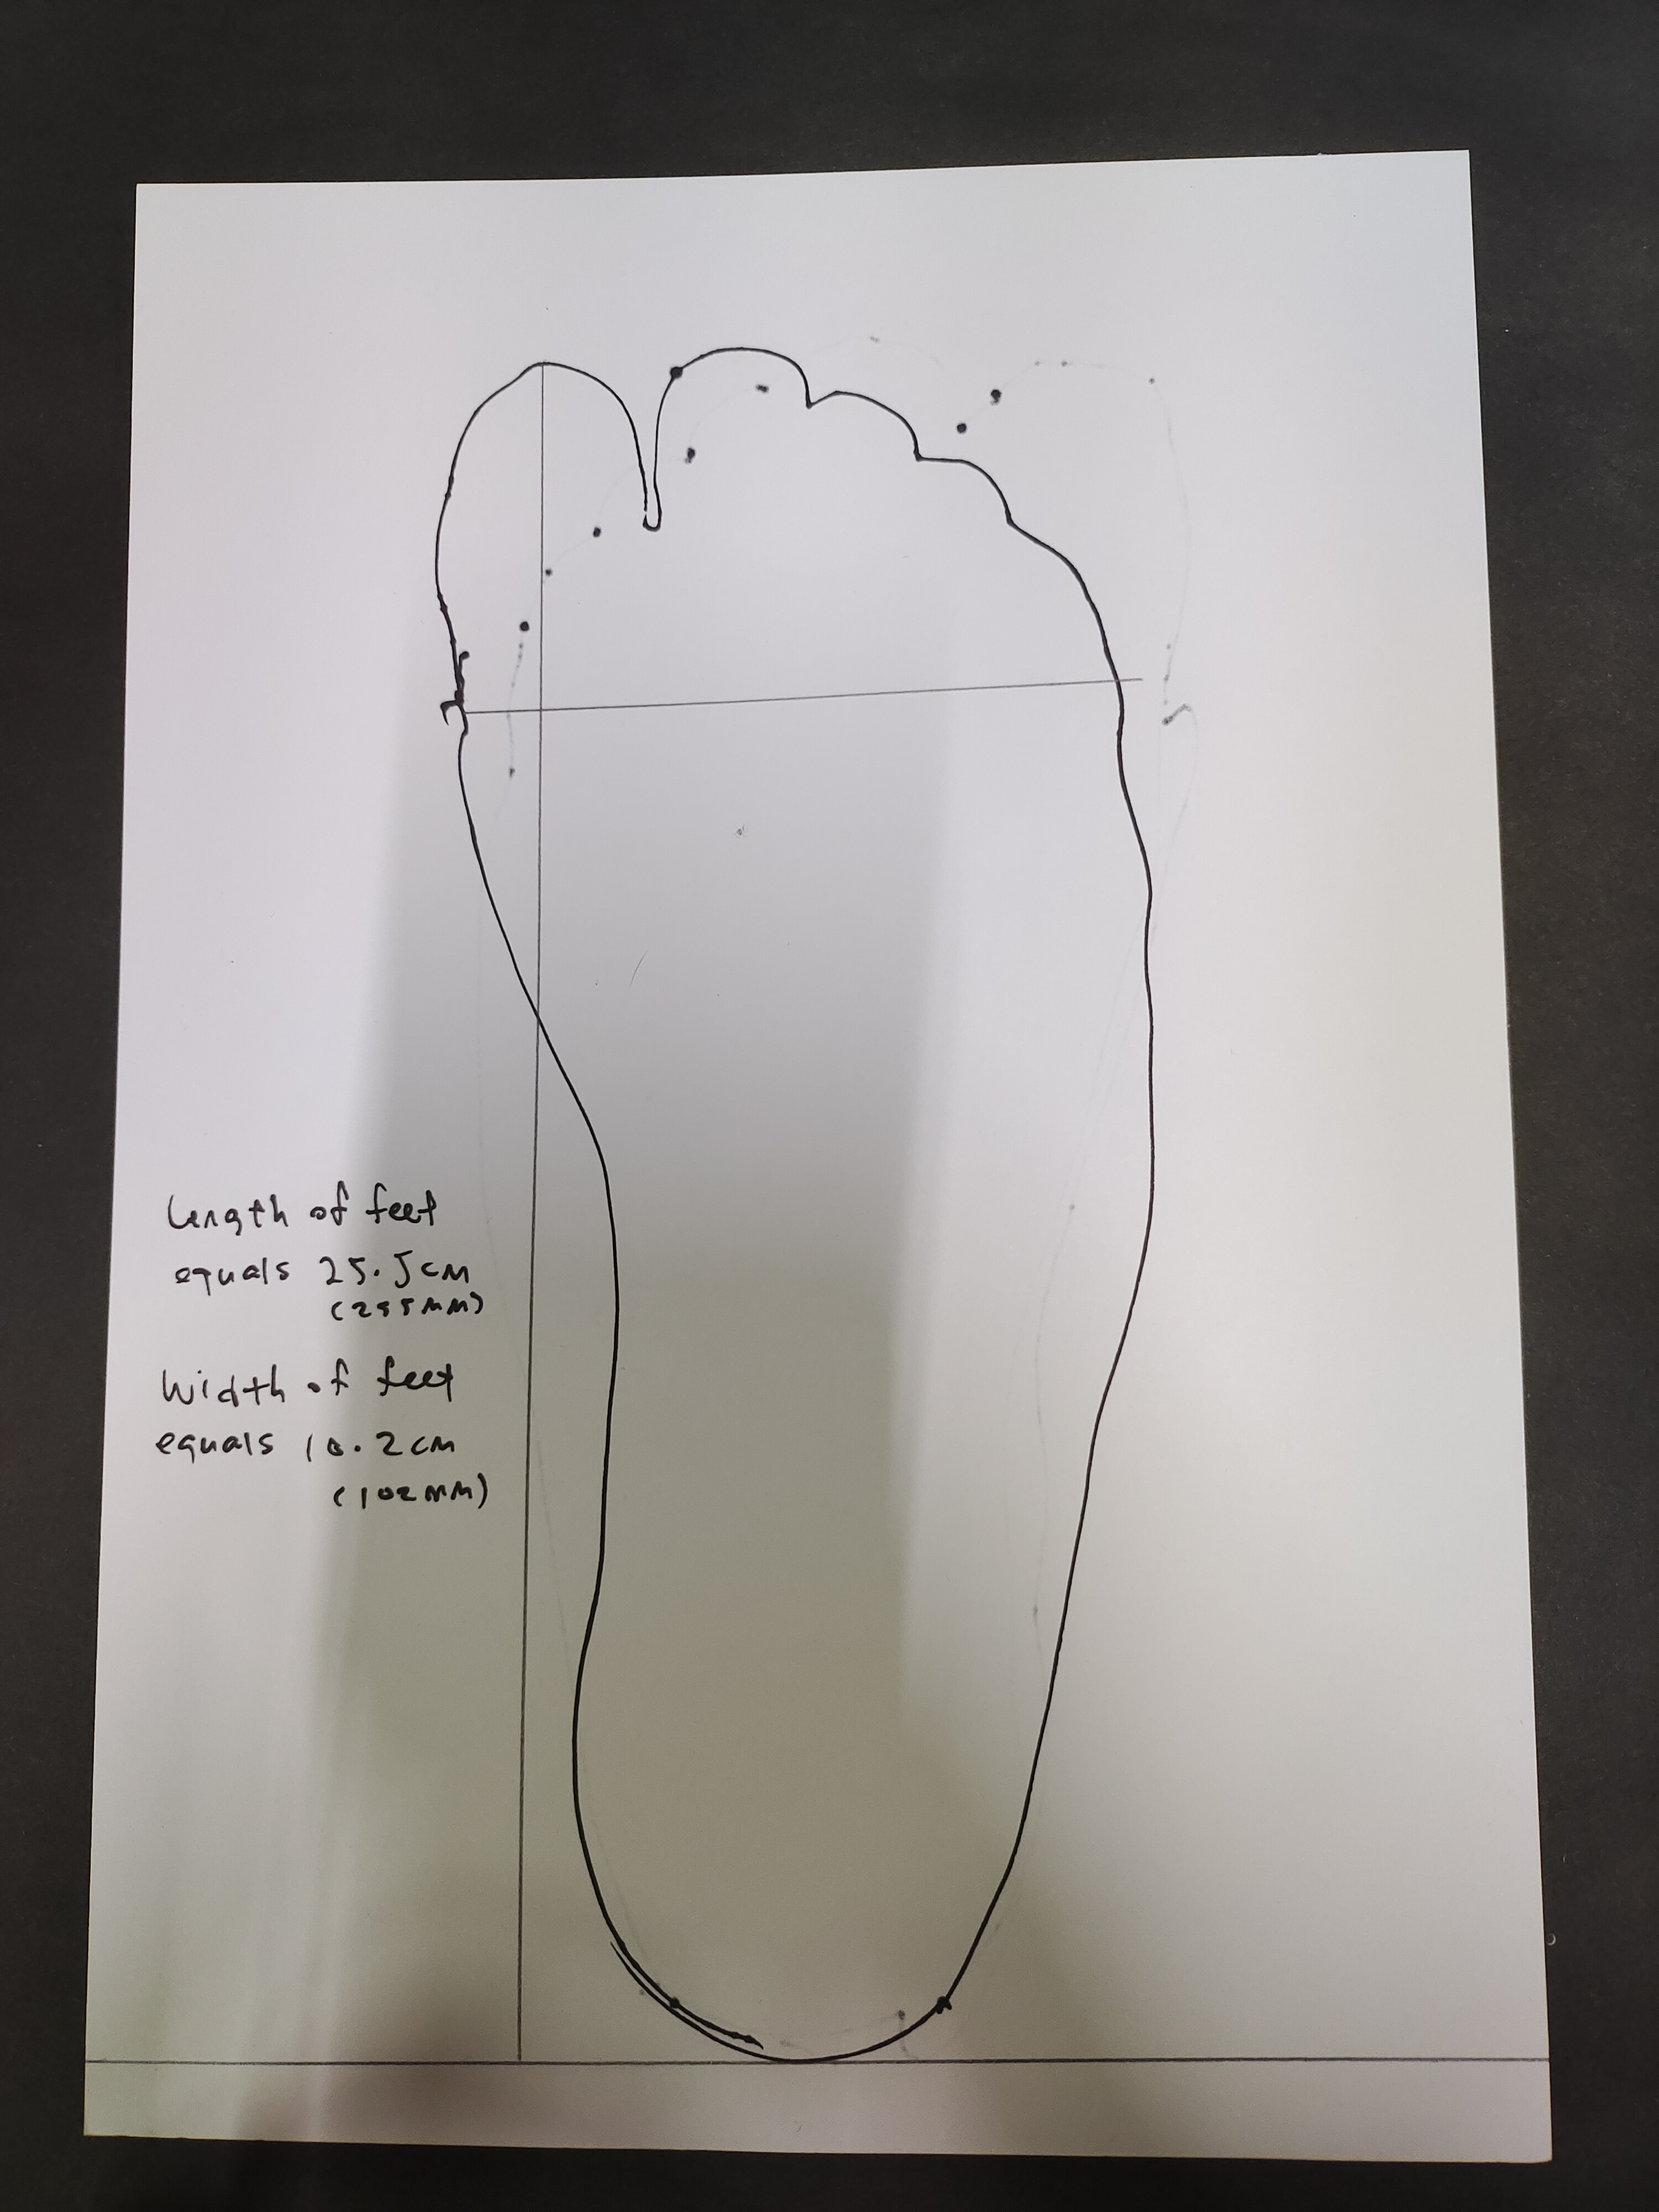 Length of feet
equals 25.5cm
(255MM)
Width of feet
equals 10.2cm
(102MM)